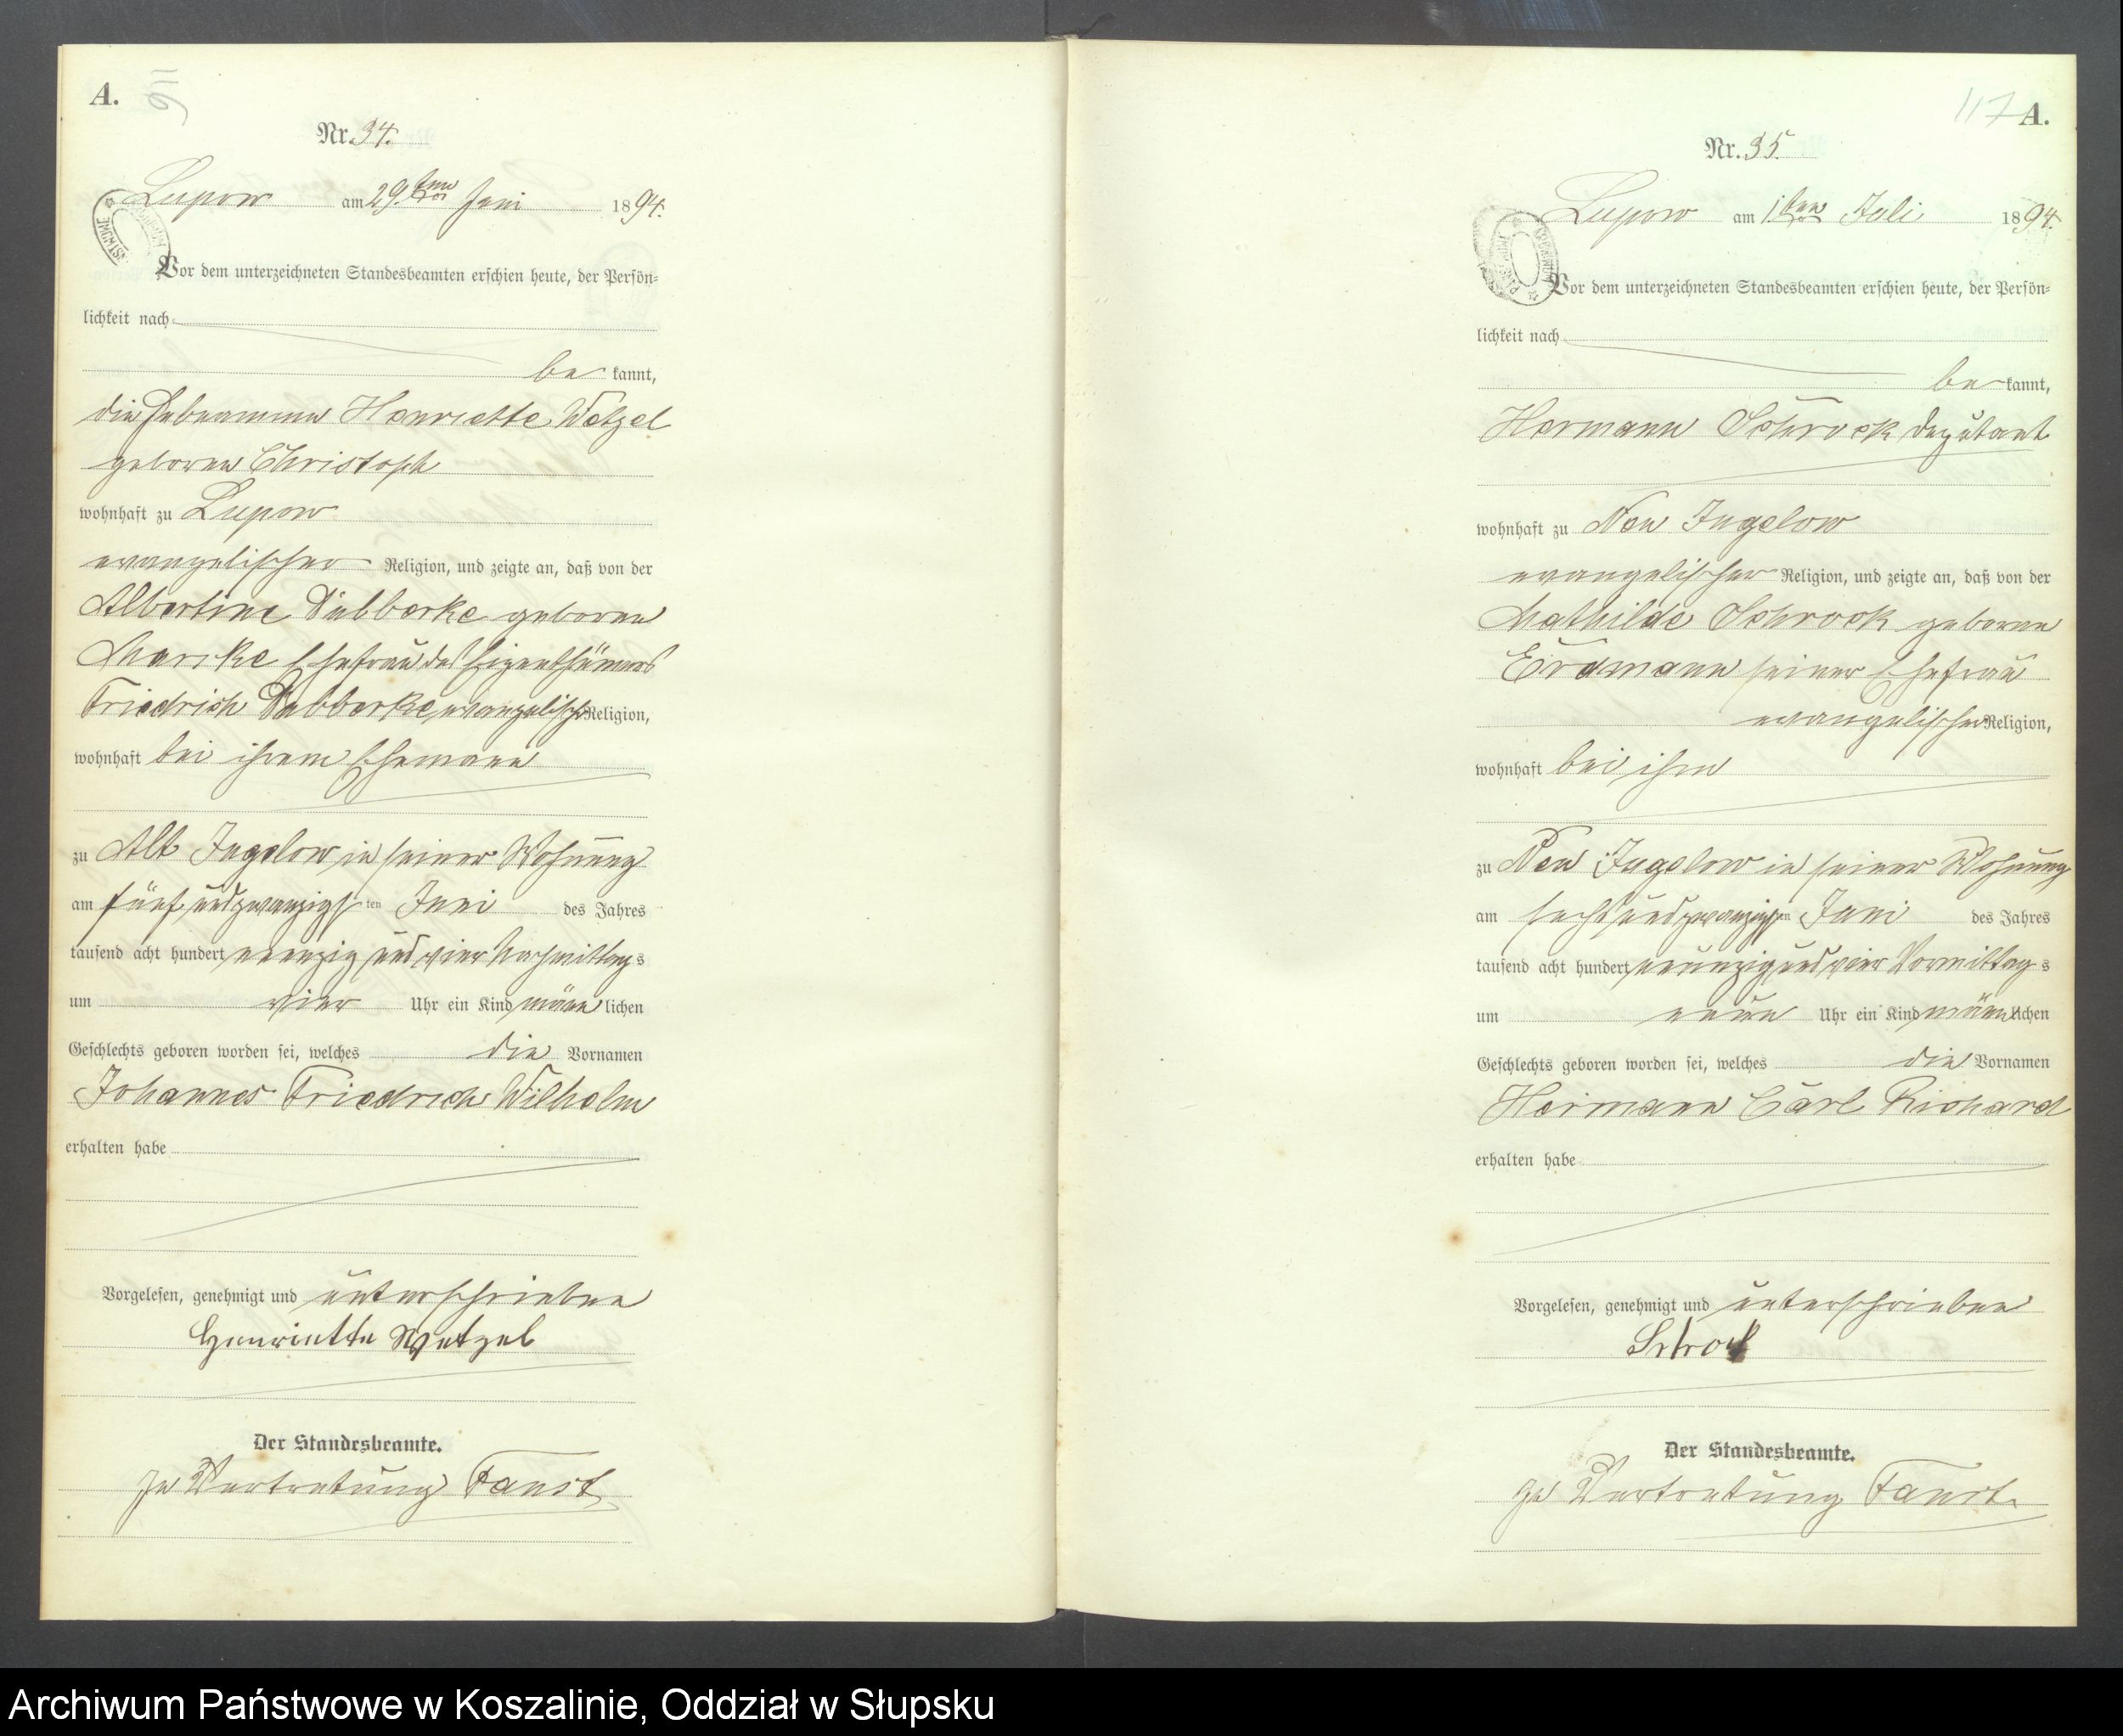 A.
Nr. 34.
Lupow am 29ten Juni 1894.
Vor dem unterzeichneten Standesbeamten erschien heute, der Persön=
lichkeit nach
be kannt,
die Hebeamme Henriette Wetzel
geborne Christoph
wohnhaft zu Lupow
evangelischer Religion, und zeigte an, daß von der
Albertine Dubberke geborne
Marske Ehefrau des Eigenthümers
Friedrich Dubberke, evangelischer Religion,
wohnhaft bei ihrem Ehemann
zu Alt Jugelow in seiner Wohnung
am fünf und zwanzigsten Juni des Jahres
tausend acht hundert neunzig und vier Nachmittags
um vier Uhr ein Kind männlichen
Geschlechts geboren worden sei, welches die Vornamen
Johannes Friedrich Wilhelm
erhalten habe
Vorgelesen, genehmigt und unterschrieben
Henriette Wetzel
Der Standesbeamte.
In Vertretung Faust
117 A.
Nr. 35.
Lupow am 1ten Juli 1894.
Vor dem unterzeichneten Standesbeamten erschien heute, der Persön=
lichkeit nach
be kannt,
Hermann Schrock Deputant
wohnhaft zu Neu Jugelow
evangelischer Religion, und zeigte an, daß von der
Mathilde Schrock geborne
Erdmann seiner Ehefrau
evangelischer Religion,
wohnhaft bei ihm
zu Neu Jugelow in seiner Wohnung
am sechs und zwanzigsten Juni des Jahres
tausend acht hundert neunzig und vier Vormittags
um neun Uhr ein Kind männlichen
Geschlechts geboren worden sei, welches die Vornamen
Hermann Carl Richard
erhalten habe
Vorgelesen, genehmigt und unterschrieben
Schrock
Der Standesbeamte.
In Vertretung Faust.
Archiwum Państwowe w Koszalinie, Oddział w Słupsku